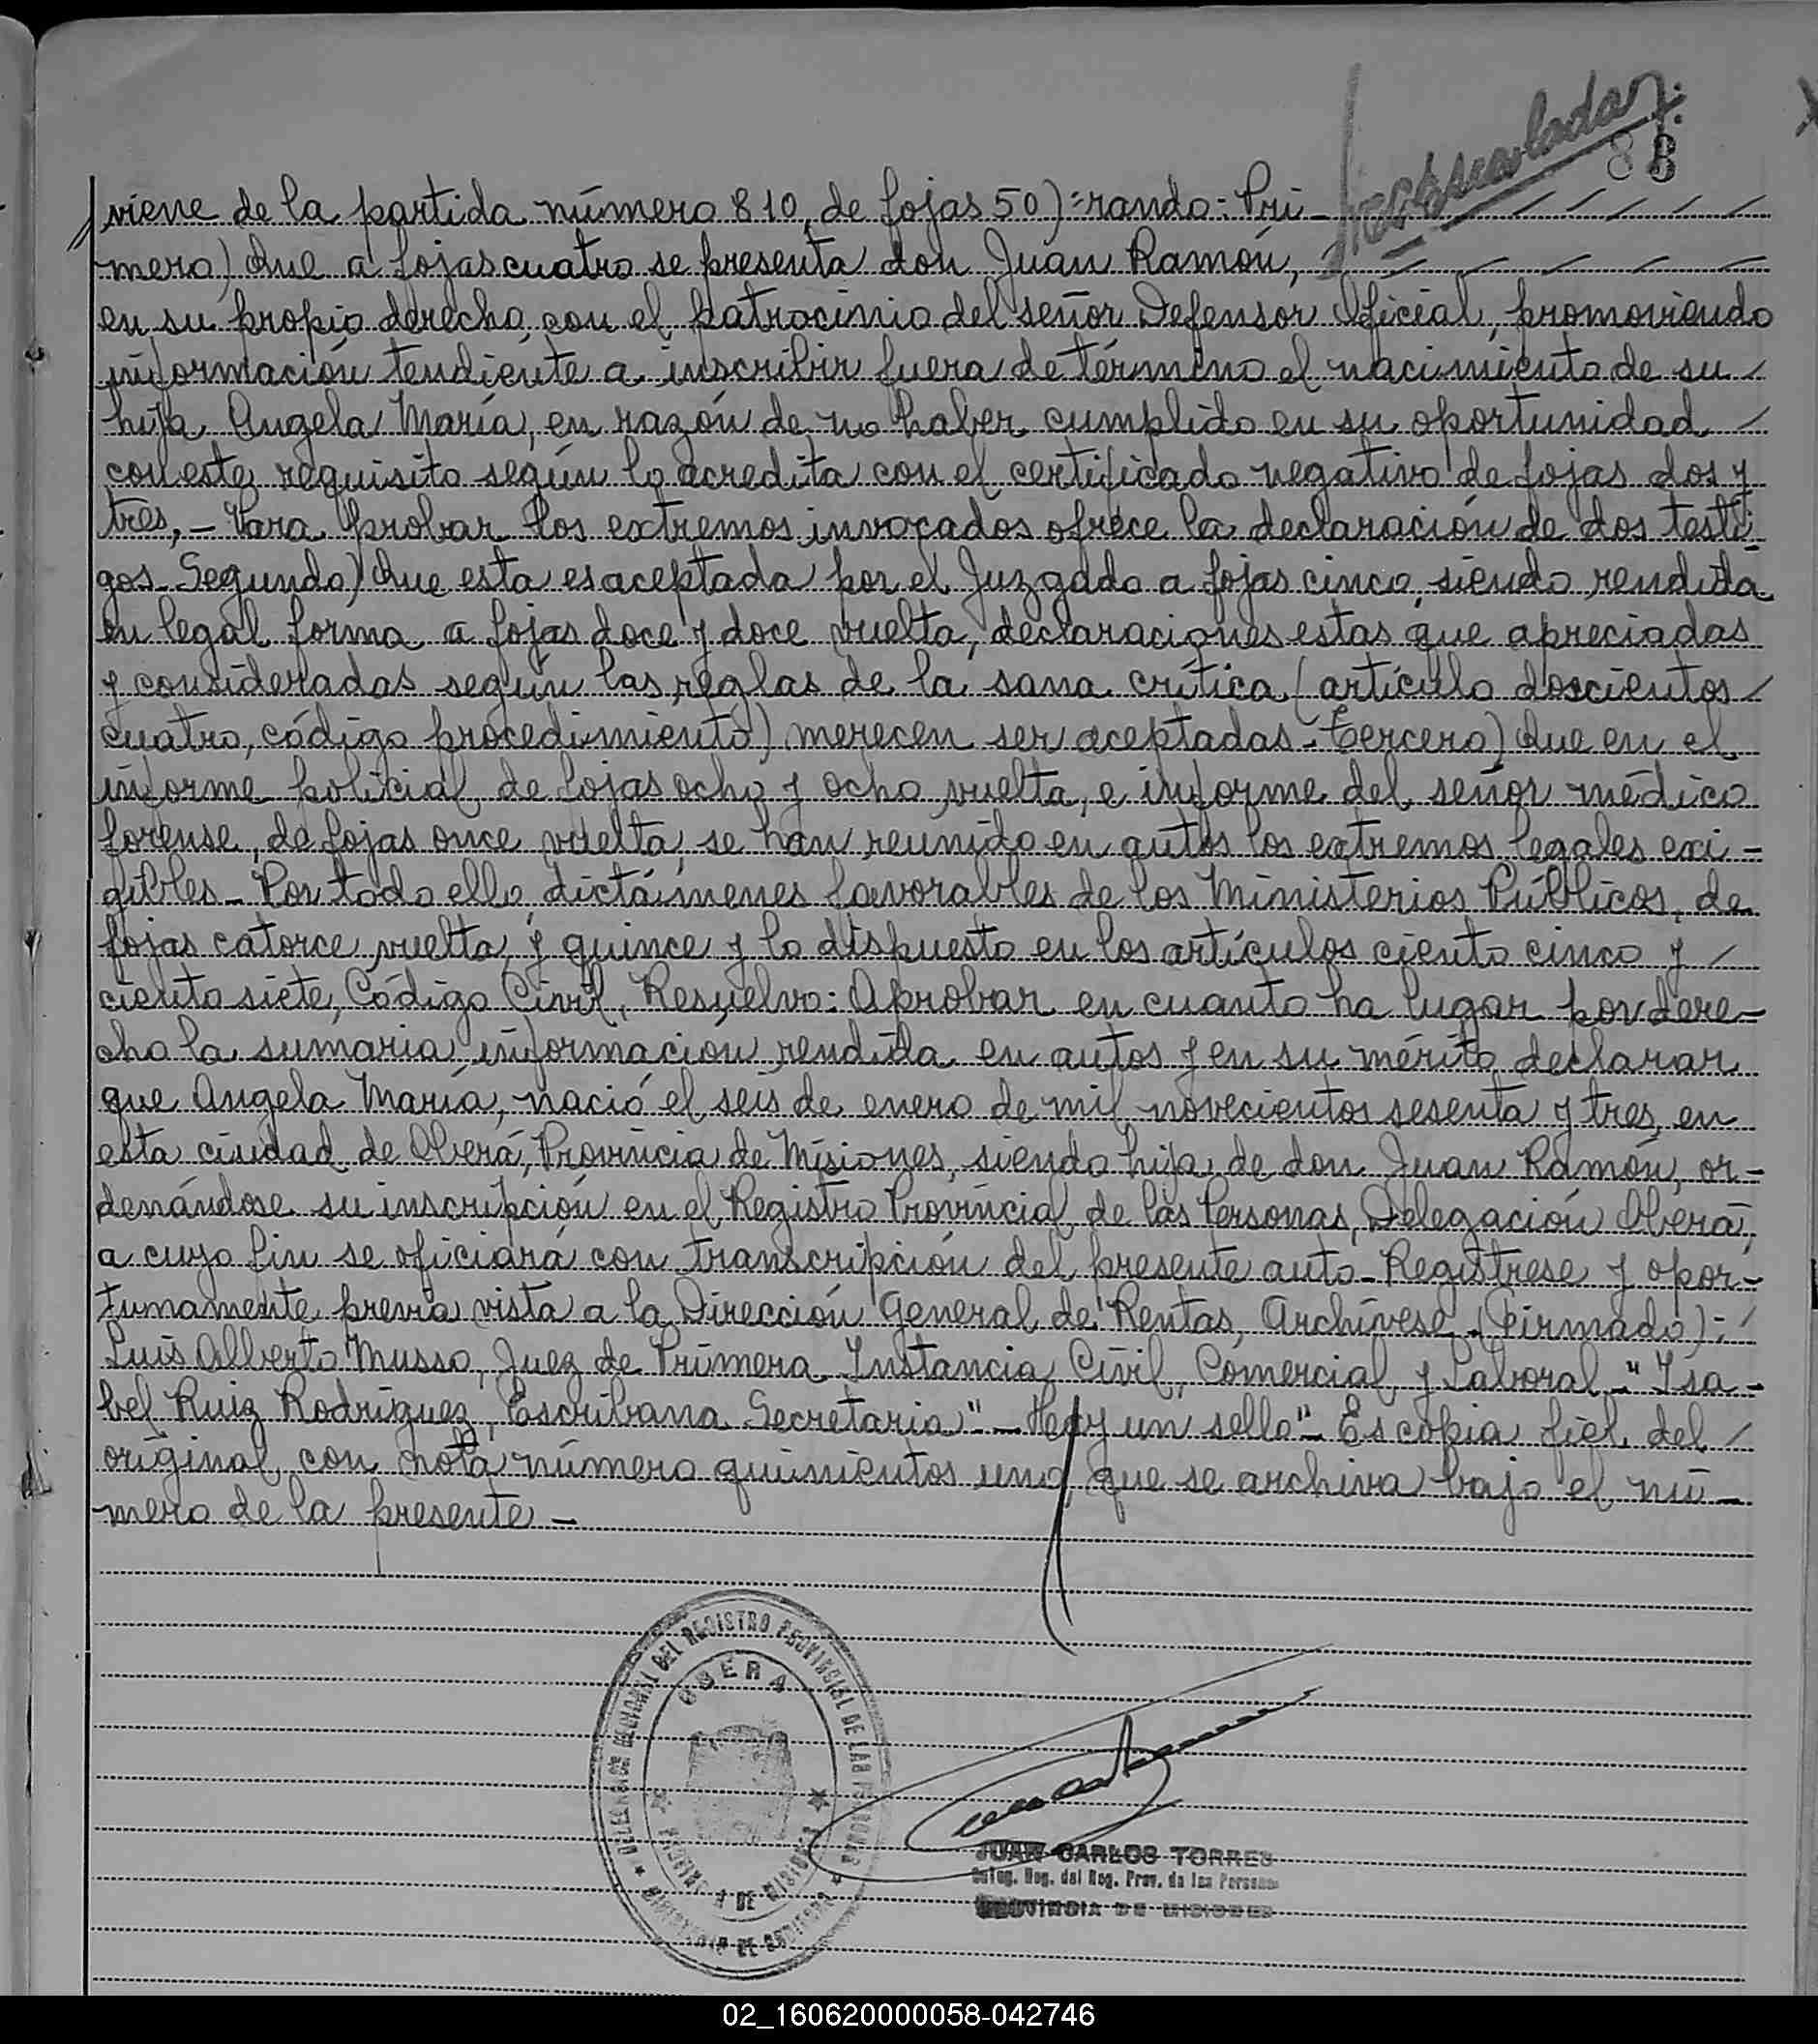 88
viene de la partida número 810, de fojas 50)=rando: Pri-
mero) Que a fojas cuatro se presenta don Juan Ramón,
en su propio derecho con el patrocinio del señor Defensor Oficial, promoviendo
información tendiente a inscribir fuera de término el nacimiento de su
hija Angela María, en razón de no haber cumplido en su oportunidad
con este requisito según lo acredita con el certificado negativo de fojas dos y
tres,- Para probar los extremos invocados ofrece la declaración de dos testi-
gos- Segundo) Que esta es aceptada por el Juzgado a fojas cinco, siendo rendida
en legal forma a fojas doce y doce vuelta, declaraciones estas que apreciadas
y consideradas según las reglas de la sana crítica (artículo doscientos
cuatro, código procedimiento) merecen ser aceptadas- Tercero) Que en el
informe policial, de fojas ocho y ocho vuelta, e informe del señor médico
forense, de fojas once vuelta, se han reunido en autos los extremos legales exi-
gibles- Por todo ello, dictámenes favorables de los Ministerios Públicos, de
fojas catorce vuelta, y quince y lo dispuesto en los artículos ciento cinco y
ciento siete, Código Civil, Resuelvo: Aprobar en cuanto ha lugar por dere-
cho la sumaria información rendida en autos y en su mérito declarar
que Angela María, nació el seis de enero de mil novecientos sesenta y tres, en
esta ciudad de Oberá, Provincia de Misiones, siendo hija de don Juan Ramón, or-
denándose su inscripción en el Registro Provincial de las Personas, Delegación Oberá,
a cuyo fin se oficiará con transcripción del presente auto- Registrese y opor-
tunamente previa vista a la Dirección General de Rentas, Archívese. (Firmado):
Luis Alberto Musso, Juez de Primera Instancia Civil, Comercial y Laboral-" Isa-
bel Ruiz Rodríguez, Escribana Secretaria"- Hay un sello"- Es copia fiel del
original con nota número quinientos uno, que se archiva bajo el nú-
mero de la presente-
DELEGACION REGIONAL DEL REGISTRO PROVINCIAL DE LAS PERSONAS
OBERA
PROVINCIA DE MISIONES
JUAN CARLOS TORRES
Deleg. Reg. del Reg. Prov. de las Personas
PROVINCIA DE MISIONES
02_160620000058-042746